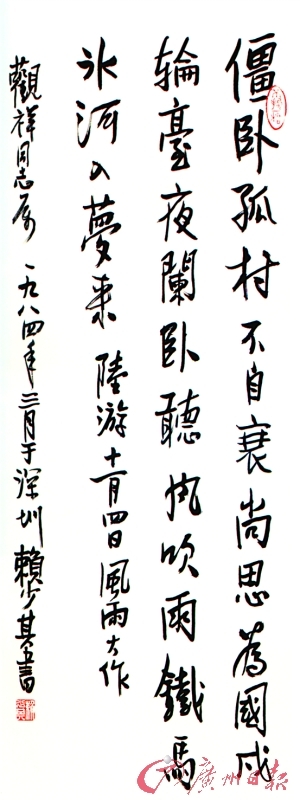 僵卧孤村不自衰尚思為國戍
輪臺夜闌卧聽风吹雨鐵馬
氷河入夢来 陸游十一月四日風雨大作
觀祥同志属 一九八四年三月于深圳 賴少其書
廣州日報